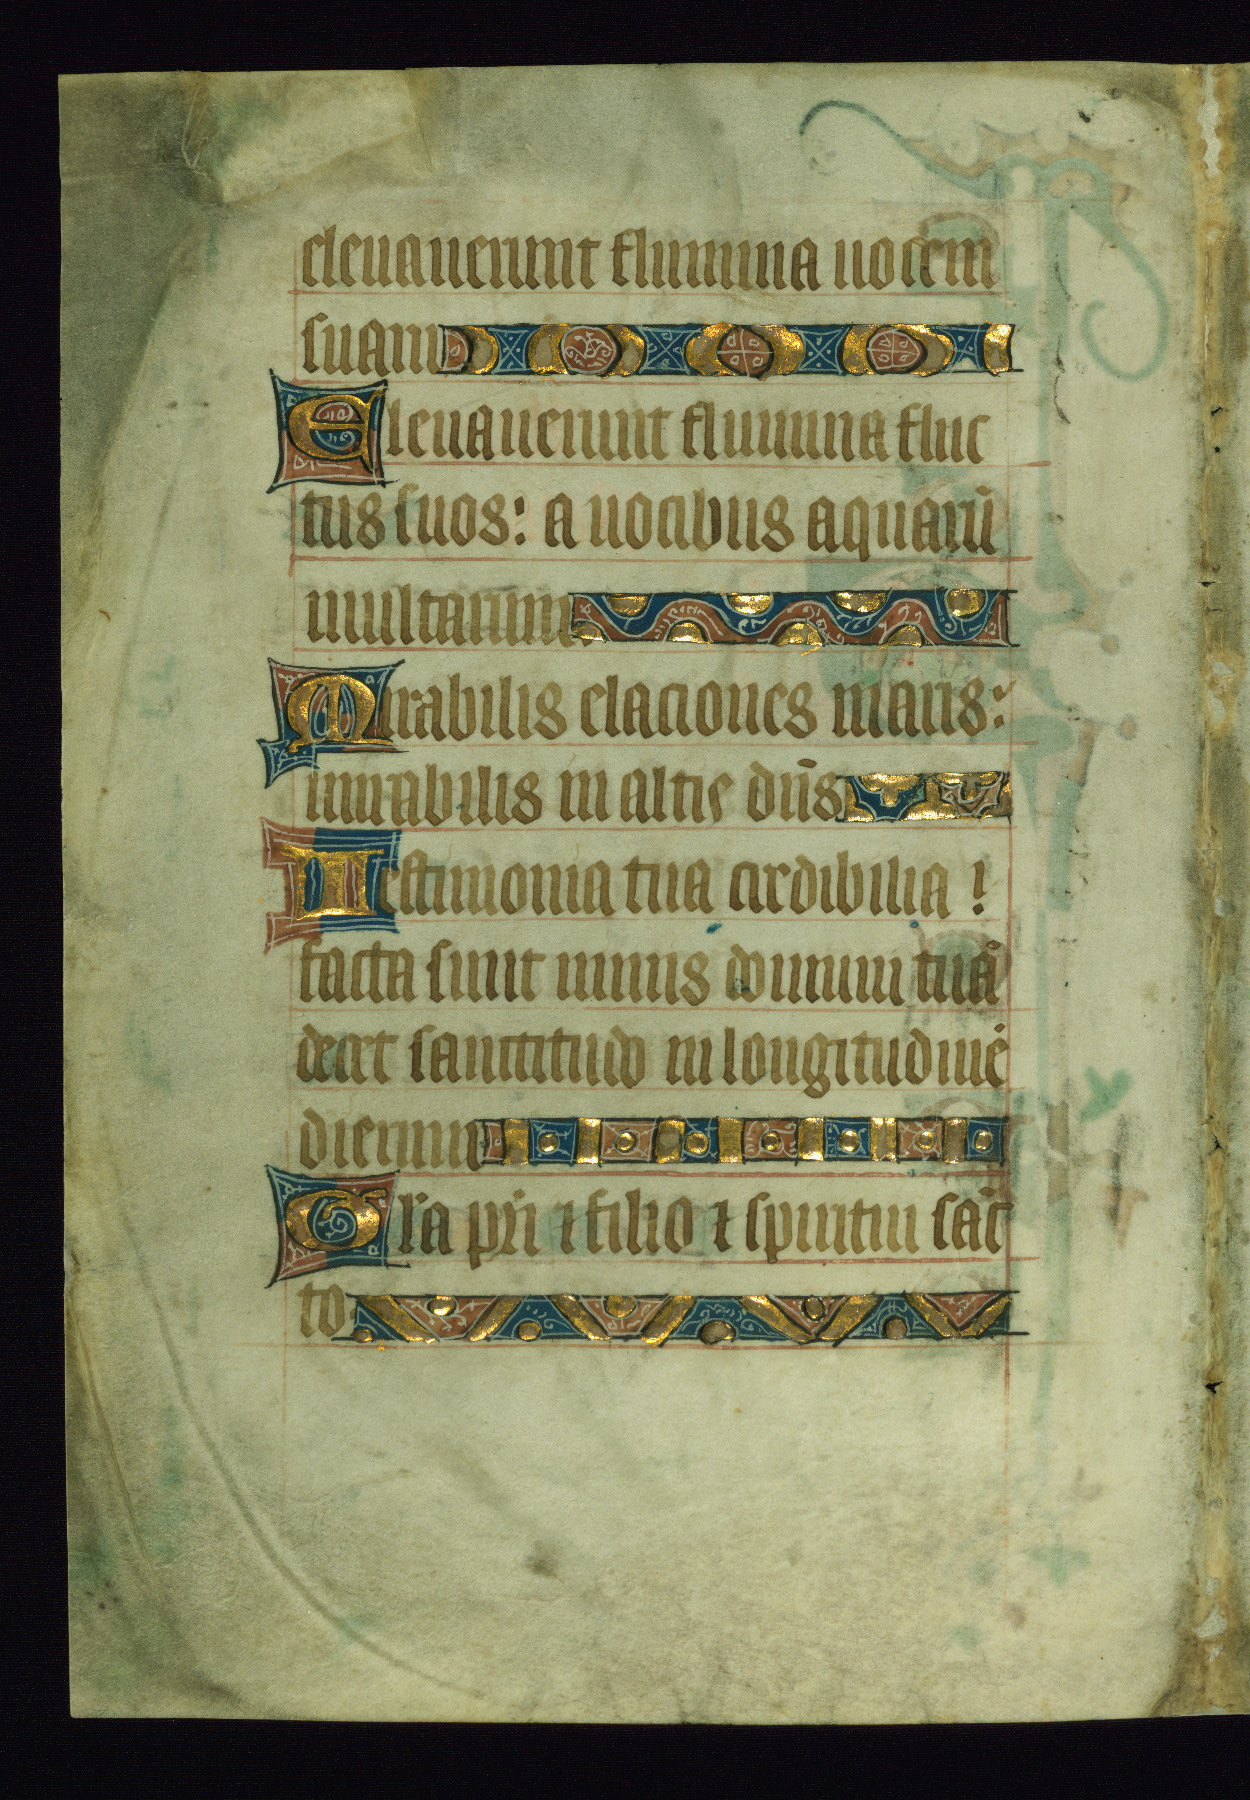 eleuauerunt flumina uocem
suam
Eleuauerunt flumina fluc
tus suos: a uocibus aquarū
multarum
Mirabilis elaciones maris:
mirabilis in altis dn̄s
Testimonia tua credibilia !
facta sunt nimis domum tuā
decet sanctitudo in longitudinē
dierum
Gl'a pr̄i ⁊ filio ⁊ spiritui sāc
to